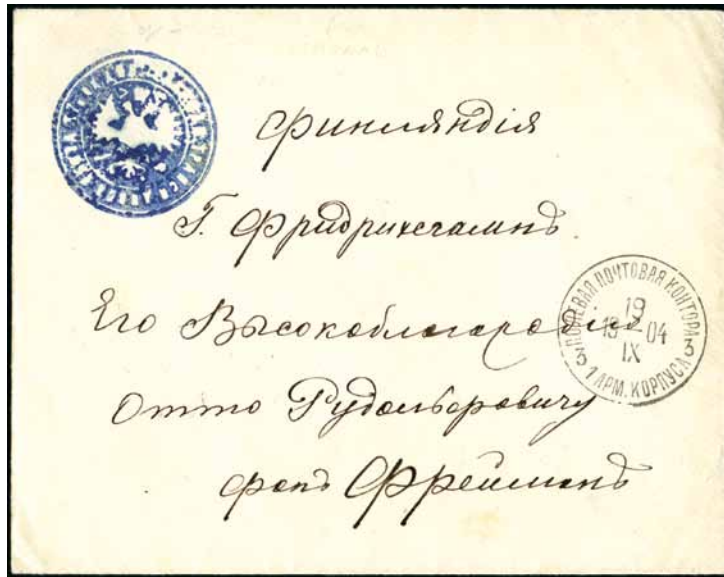 Финляндія
Г. Фридрихсгамнъ
Его Высокоблагородію
Отто Рудольфовичу
фонъ Фрейманъ
ПОЛЕВАЯ ПОЧТОВАЯ КОНТОРА
19
19 04
IX
3 3
1 АРМ. КОРПУСА